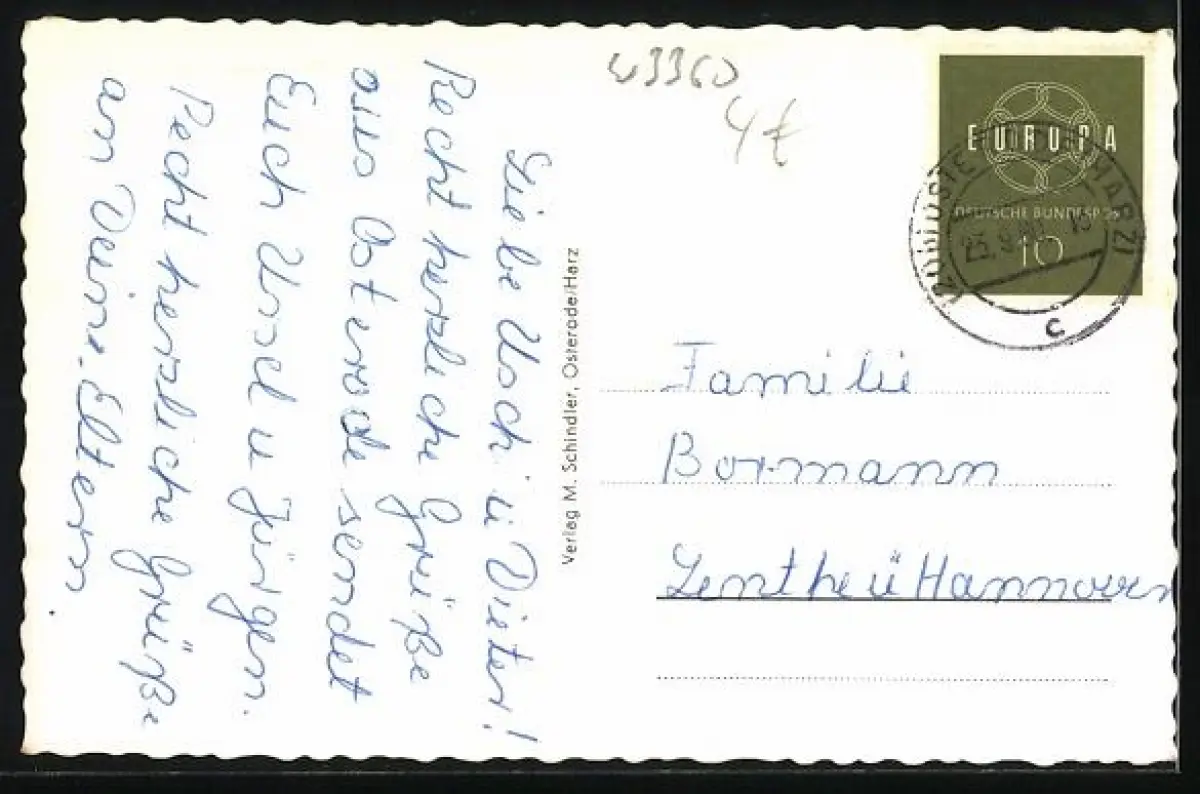 Liebe Usch u Dieter!
Recht herzliche Grüße
aus Osterode sendet
Euch Ursel u Jürgen.
Recht herzliche Grüße
an Deine Eltern.
Verlag M. Schindler, Osterode/Harz
43360
4 €
EUROPA
DEUTSCHE BUNDESPOST
10
(20b) OSTERODE (HARZ)
c
Familie
Bormann
Lenthe ü Hannover